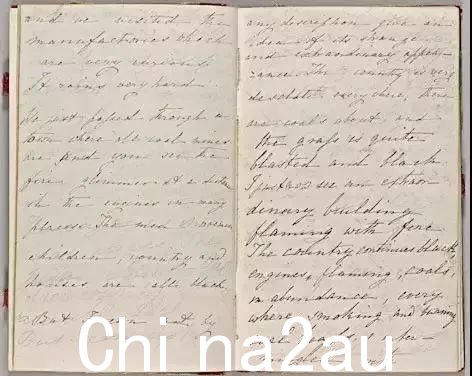 and we visited the
manufactories which
are very curious.
It rains very hard.
We just passed through a
town where all coal mines
are and you see the
fire glimmer at a distance
in the engines in many
places. The men, women,
children, country and
houses are all black.
But I can not by
any description give an
idea of its strange
and extraordinary appearance. The country is very
desolate every where; there
are coals about, and
the grass is quite
blasted and black.
I just now see an extraor
dinary building
flaming with fire.
The country continues black,
engines, flaming, coals,
in abundance, every
where, smoking and burning
coal heaps, inter-
mingled with
Chi na2au